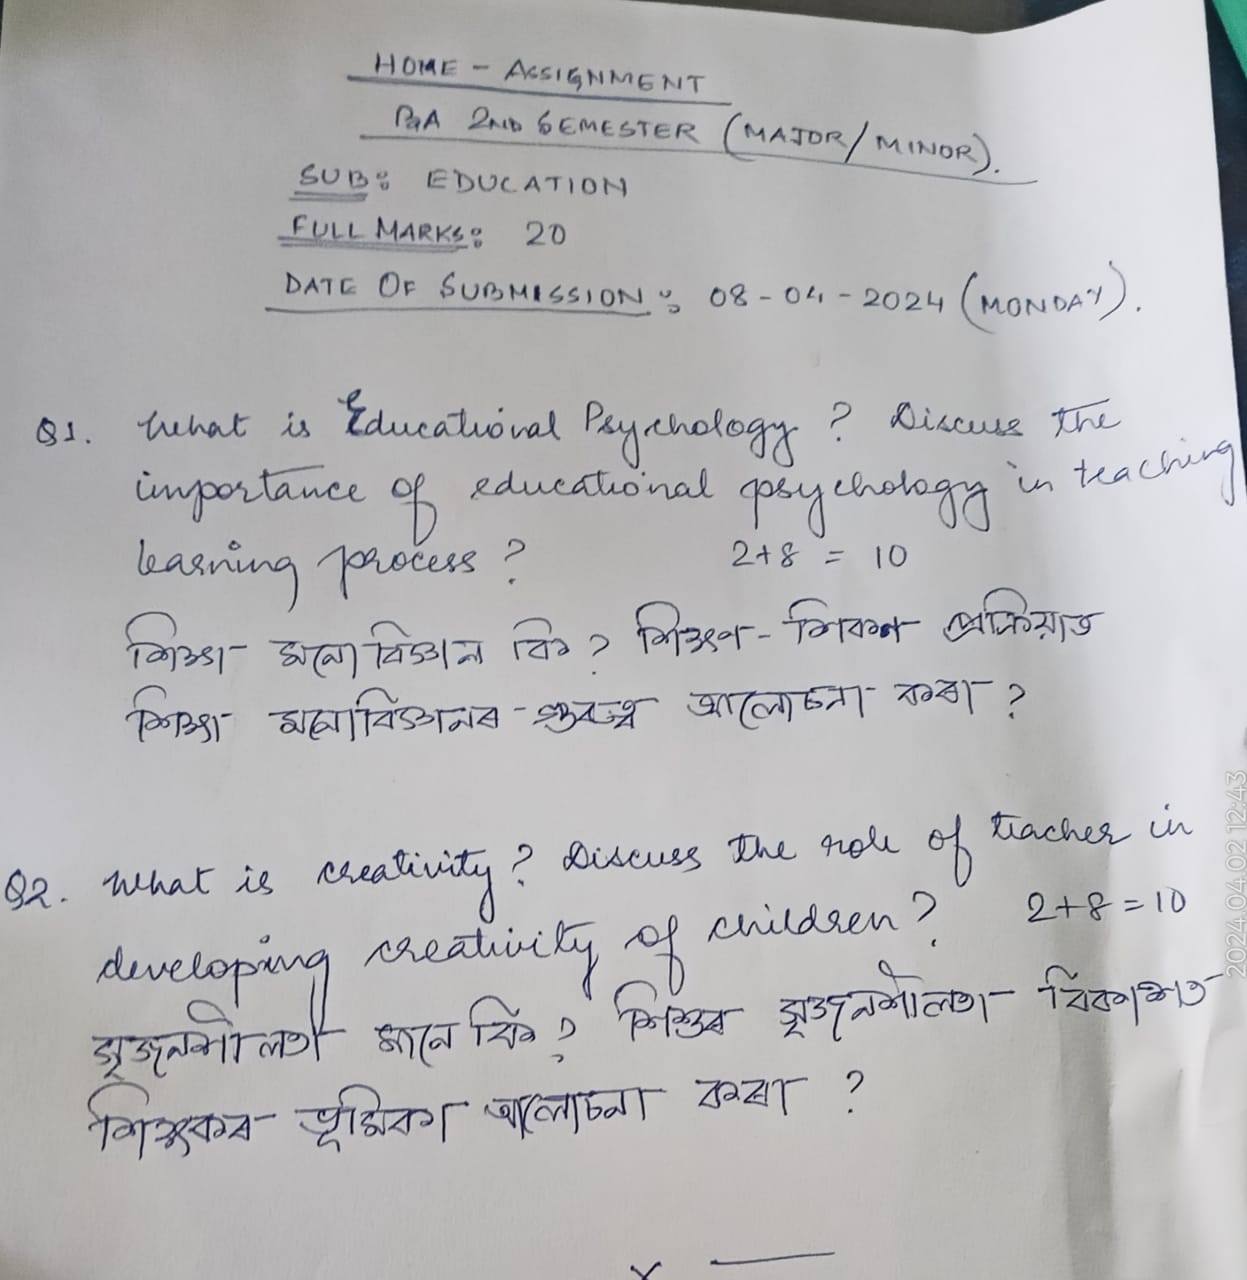 HOME - ASSIGNMENT
B.A 2ND SEMESTER (MAJOR/MINOR).
SUB: EDUCATION
FULL MARKS: 20
DATE OF SUBMISSION: 08-04-2024 (MONDAY).
Q1. What is Educational Psychology? Discuss the
importance of educational psychology in teaching
learning process? 2+8 = 10
শিক্ষা মনোবিজ্ঞান কি? শিক্ষণ-শিকণ প্ৰক্ৰিয়াত
শিক্ষা মনোবিজ্ঞানৰ গুৰুত্ব আলোচনা কৰা?
Q2. What is creativity? Discuss the role of teacher in
developing creativity of children? 2+8=10
সৃজনশীলতা মানে কি? শিশুৰ সৃজনশীলতা বিকাশত
শিক্ষকৰ ভূমিকা আলোচনা কৰা?
x —
2024.04.02 12:43